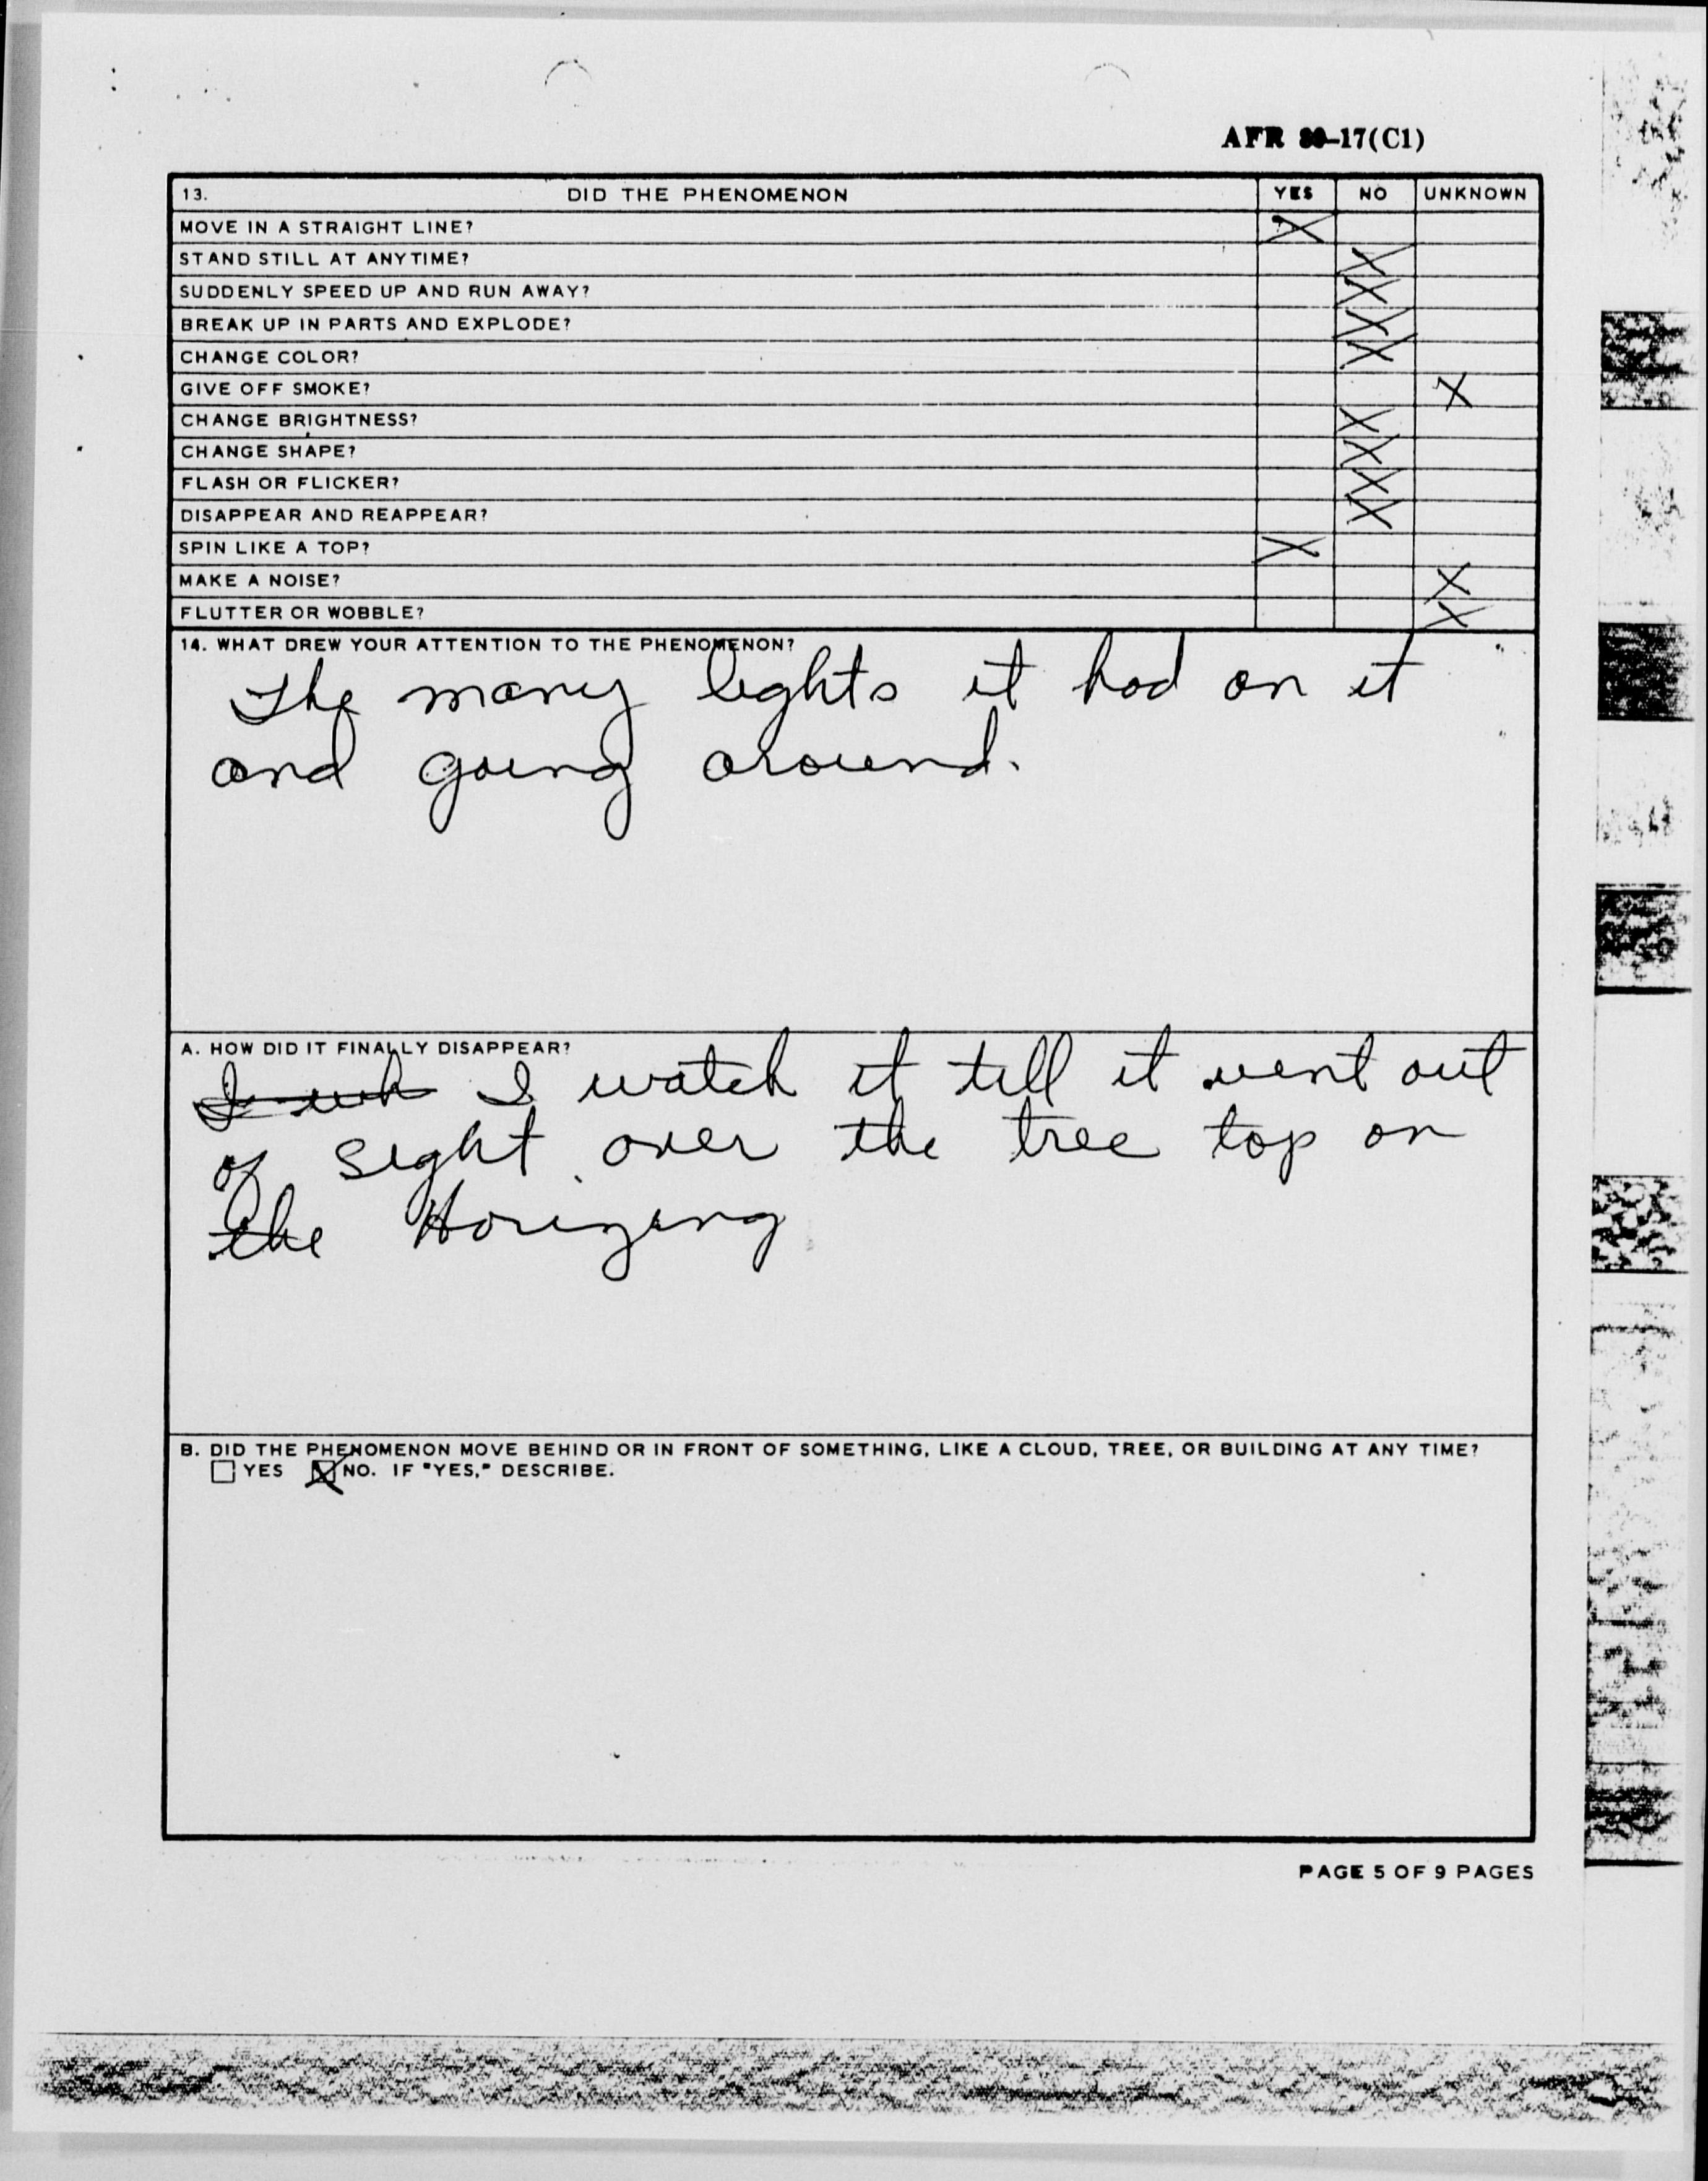 AFR 80-17(C1)
13. DID THE PHENOMENON YES NO UNKNOWN
MOVE IN A STRAIGHT LINE? X
STAND STILL AT ANYTIME? X
SUDDENLY SPEED UP AND RUN AWAY? X
BREAK UP IN PARTS AND EXPLODE? X
CHANGE COLOR? X
GIVE OFF SMOKE? X
CHANGE BRIGHTNESS? X
CHANGE SHAPE? X
FLASH OR FLICKER? X
DISAPPEAR AND REAPPEAR? X
SPIN LIKE A TOP? X
MAKE A NOISE? X
FLUTTER OR WOBBLE? X
14. WHAT DREW YOUR ATTENTION TO THE PHENOMENON?
The many lights it had on it
and going around.
A. HOW DID IT FINALLY DISAPPEAR?
I watch it till it went out
of sight over the tree top on
the Horizing
B. DID THE PHENOMENON MOVE BEHIND OR IN FRONT OF SOMETHING, LIKE A CLOUD, TREE, OR BUILDING AT ANY TIME?
YES X NO. IF "YES," DESCRIBE.
PAGE 5 OF 9 PAGES